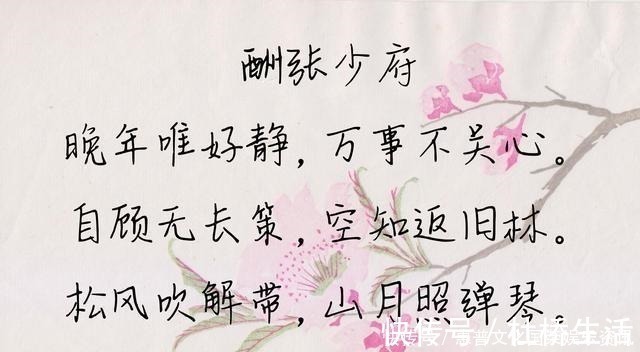 酬张少府
晚年唯好静，万事不关心。
自顾无长策，空知返旧林。
松风吹解带，山月照弹琴。
快传号/杜桥生活